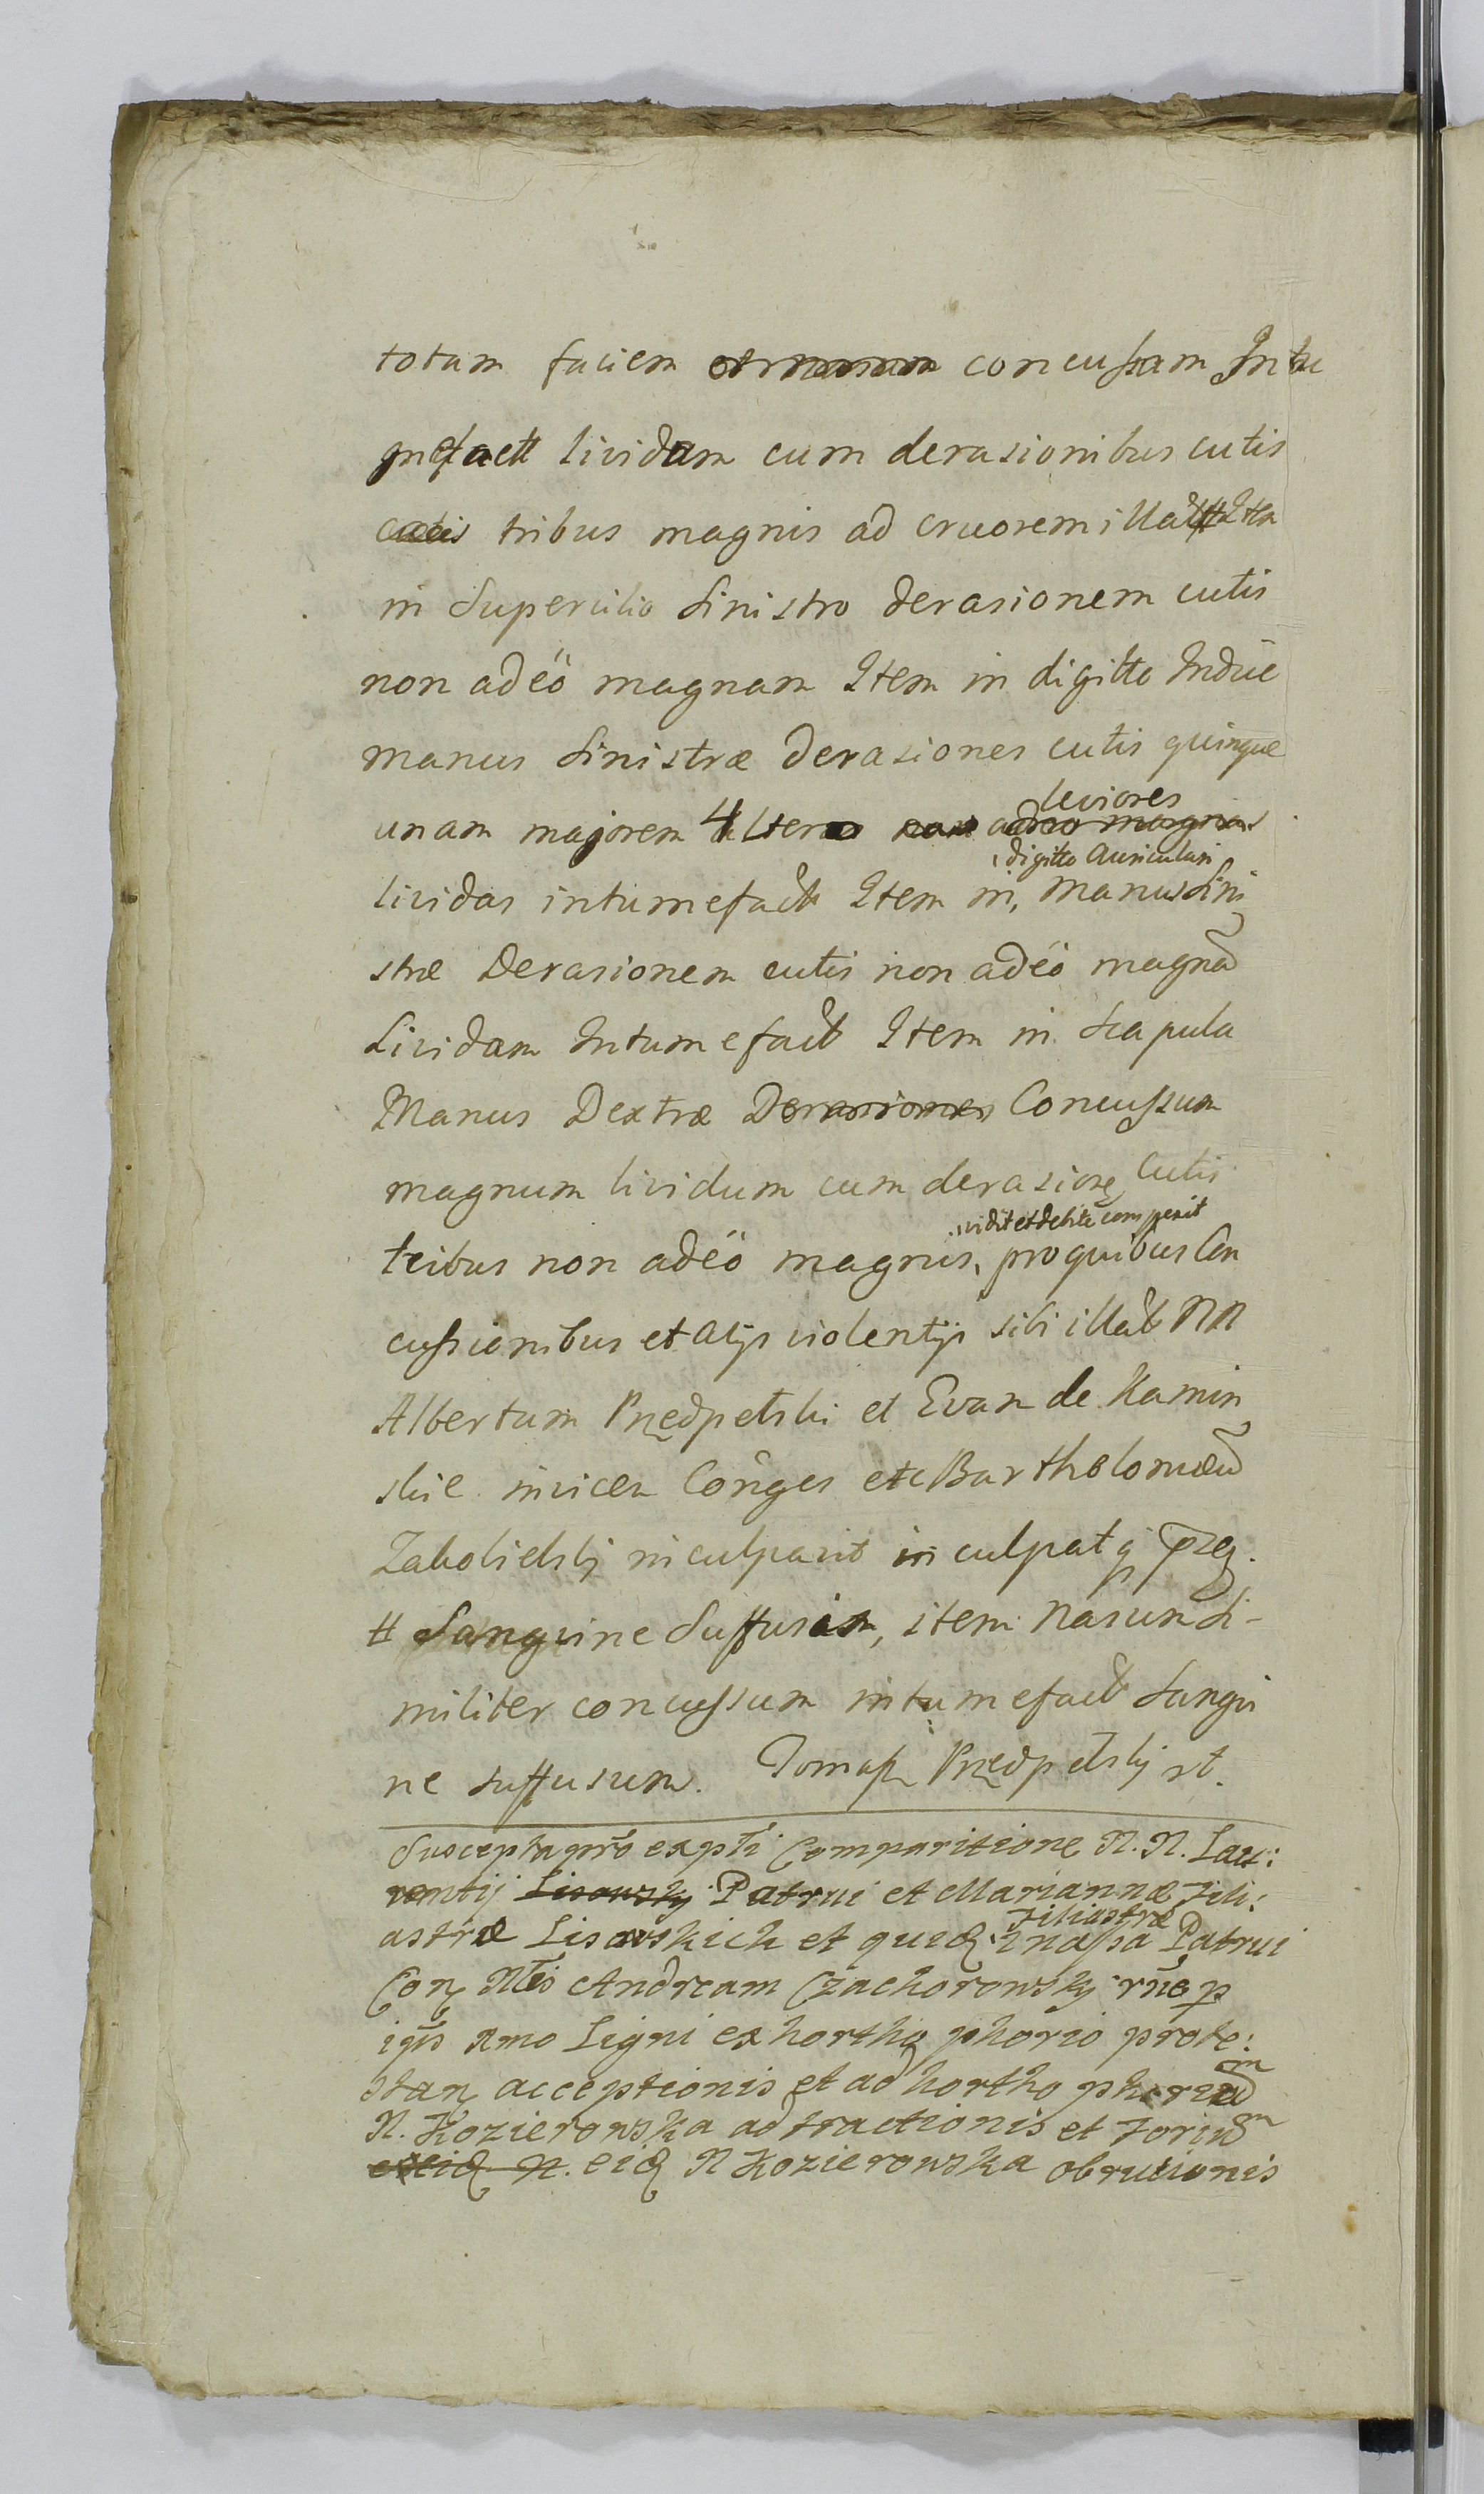 totam faciem concussam Intu
mefact lividam cum derasionibus cutis
tribus magnis ad cruorem illat # Itm
in Supercilio sinistro derasionem cutis
non adeö magnam Item in digitto Indice
manus sinistræ derasiones cutis quinque
leviores
unam majorem 4 alteras non adeo magnas
digitto Auriculari
lividas intumefact Item in manus sini
stræ Derasionem cutis non adeö magnā
Lividam Intumefact Item in scapula
Manus Dextræ Derasiones Concussum
magnum lividum cum derasione Cutis
vidit et debite comperit
tribus non adeö magnis, pro quibus Con
cussionibus et alÿs violentÿs sibi illat NN
Albertum Przedpełski et Evam de Kamin
skie invicem Con̄ges etc Bartholomæū
Zakolielskj inculpavit inculpatq præs.
# Sanguine Suffusam, item Nasum Si-
militer concussum intumefact Sangvi
ne suffusum. Tomasz Przedpełskj st.
Suscepta pro expti Comparitione N. N. Lau:
rentij Lisowsky Patrui et Mariannæ Fili:
Filiastræ
astræ Lisowskich et quidem Patrui
Con Ntis Andream Czachorowsky rne p
ipsis Amo Ligni ex hortho phorio prote:
stan acceptionis et ad hortho phorium
N. Kozierowska adtractionis et Forium
exeid N. eid N Kozierowska obrucionis